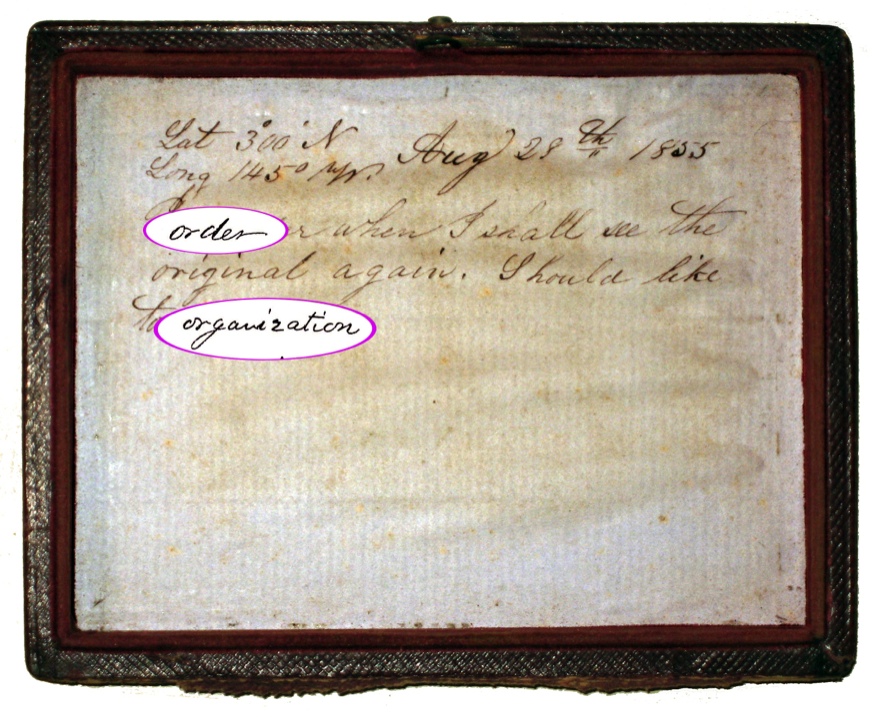 Lat 3°00' N Aug 28th 1855
Long 145° W.
order r when I shall see the
original again. Should like
to organization